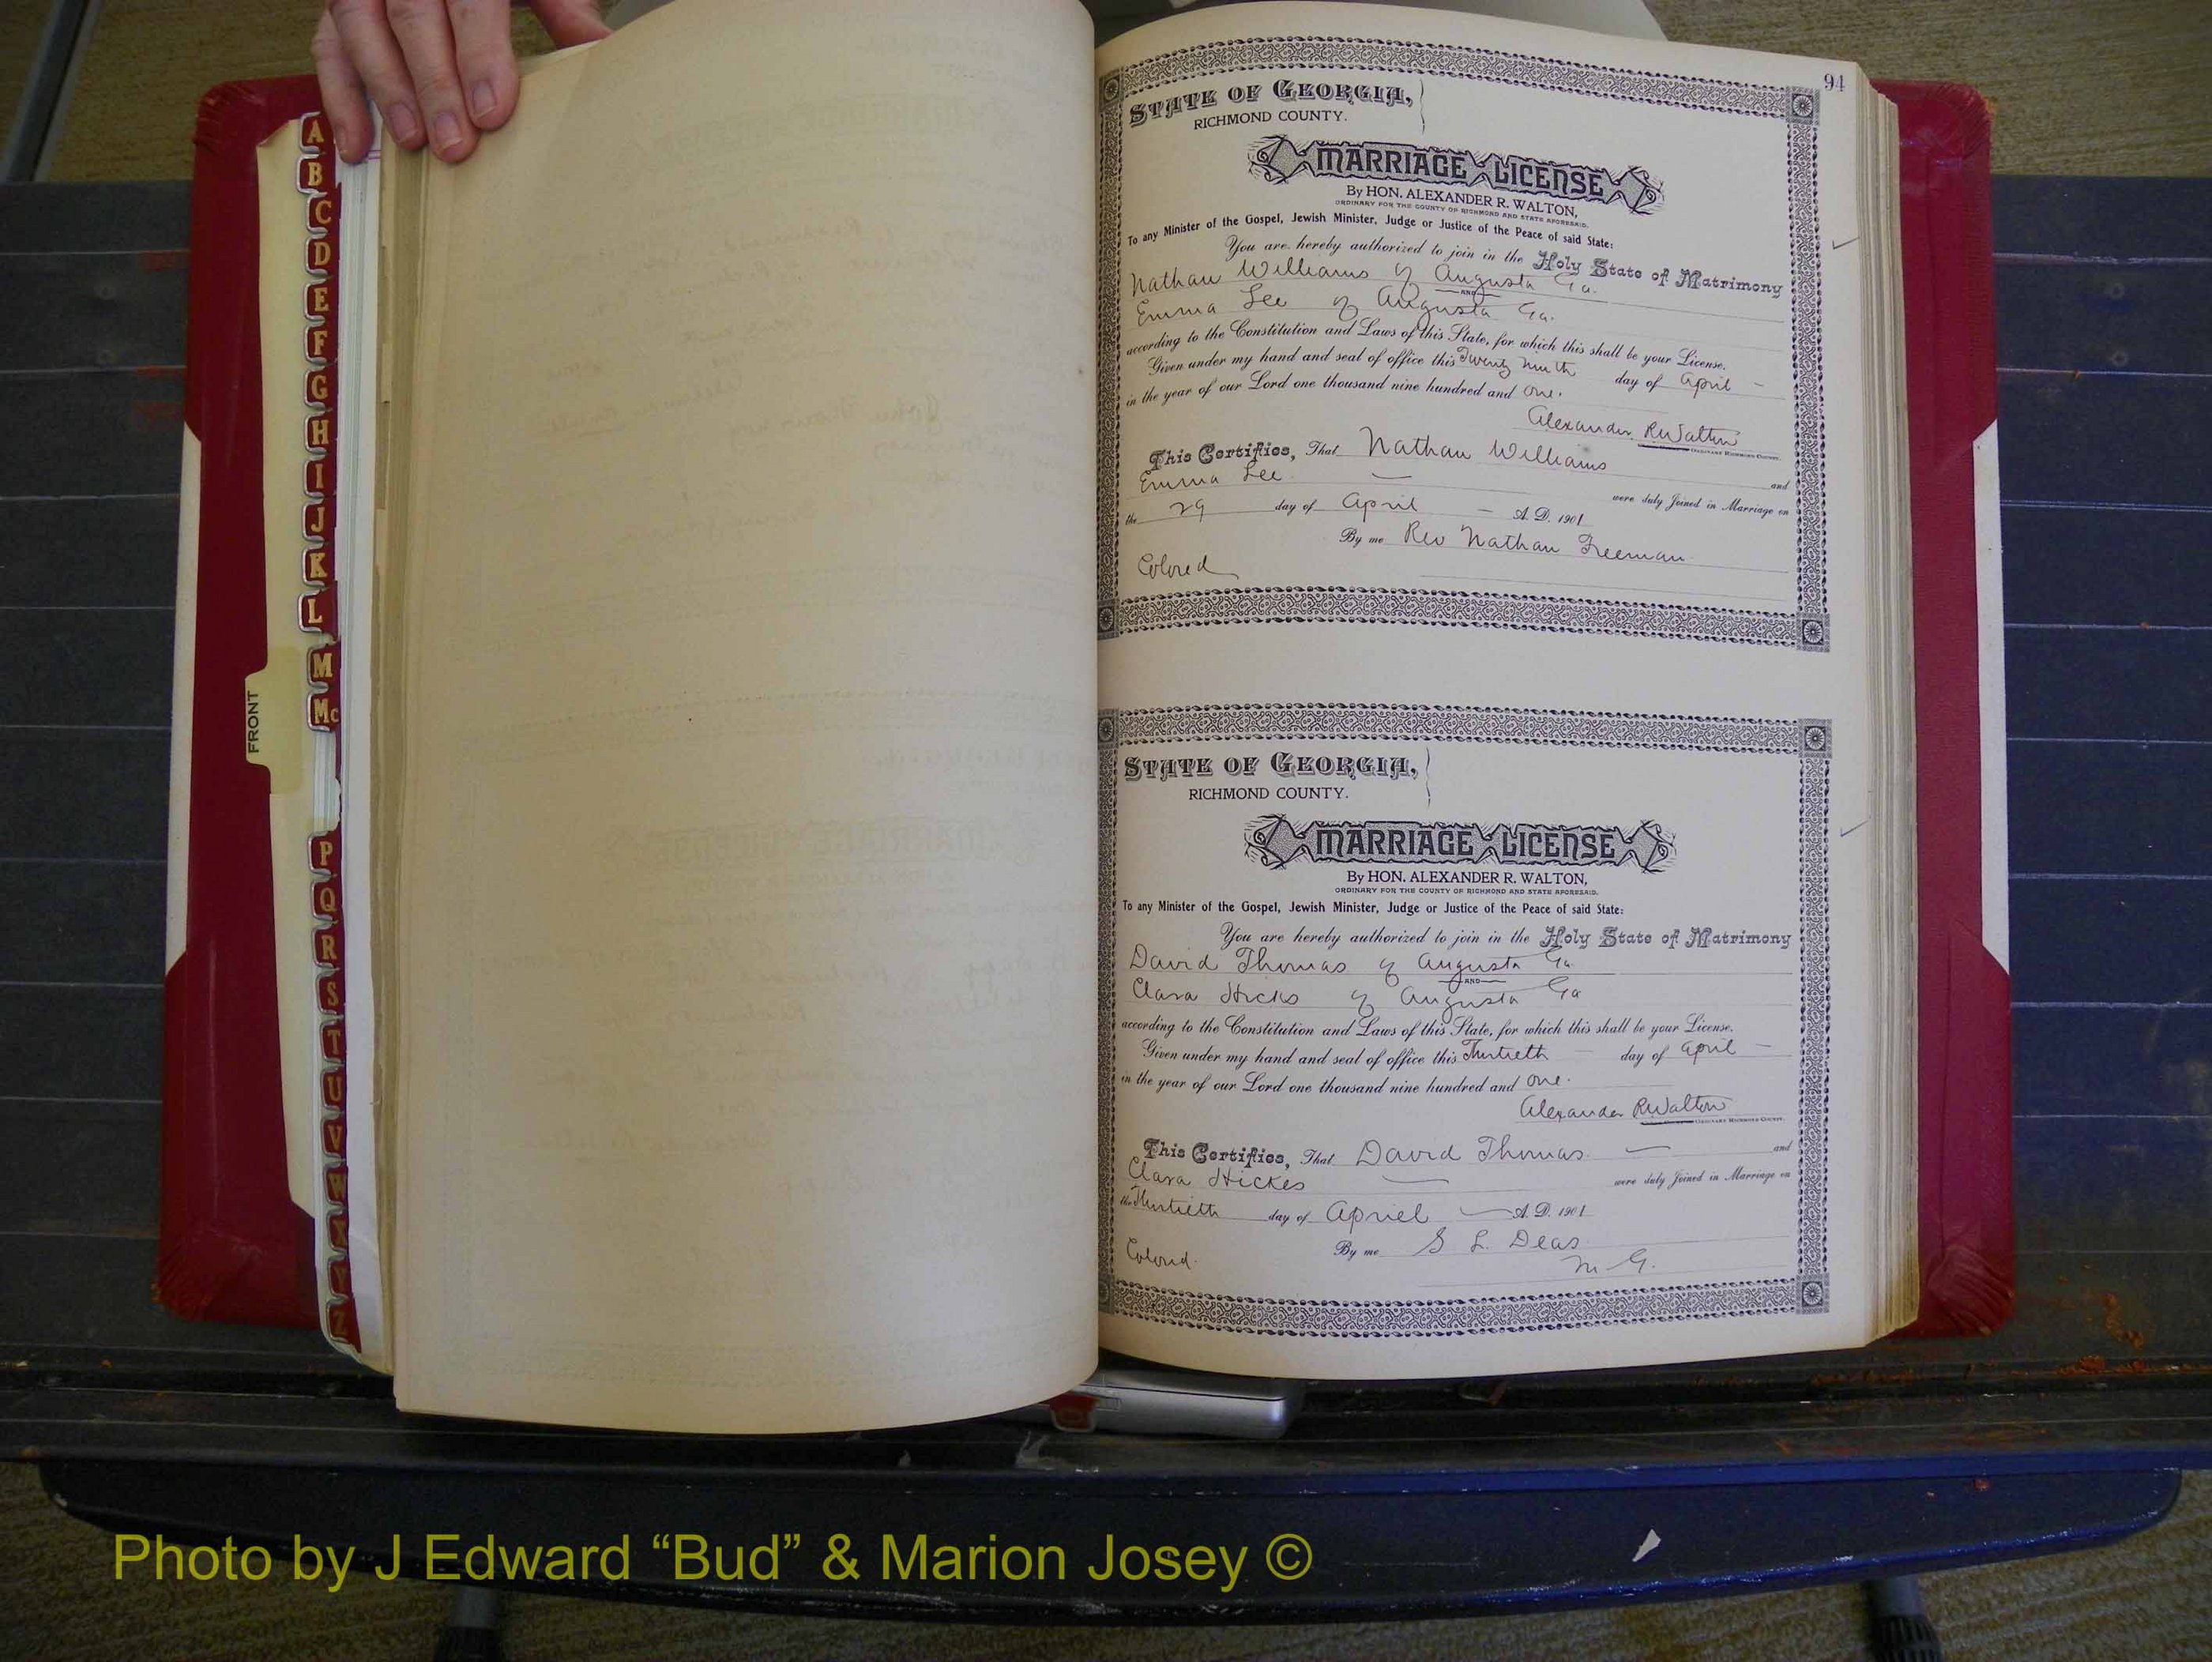 A
B
C
D
E
F
G
H
I
J
K
L
M
Mc
FRONT
P
Q
R
S
T
U
V
W
X
Y
Z
94
STATE OF GEORGIA,
RICHMOND COUNTY.
MARRIAGE LICENSE
By HON. ALEXANDER R. WALTON,
ORDINARY FOR THE COUNTY OF RICHMOND AND STATE AFORESAID.
To any Minister of the Gospel, Jewish Minister, Judge or Justice of the Peace of said State:
You are hereby authorized to join in the Holy State of Matrimony
Nathan Williams of Augusta Ga.
AND
Emma Lee of Augusta Ga.
according to the Constitution and Laws of this State, for which this shall be your License.
Given under my hand and seal of office this Twenty ninth day of April
in the year of our Lord one thousand nine hundred and one.
Alexander R Walton
ORDINARY RICHMOND COUNTY.
This Certifies, That Nathan Williams and
Emma Lee were duly Joined in Marriage on
the 29 day of April A. D. 1901
By me Rev Nathan Freeman
Colored
STATE OF GEORGIA,
RICHMOND COUNTY.
MARRIAGE LICENSE
By HON. ALEXANDER R. WALTON,
ORDINARY FOR THE COUNTY OF RICHMOND AND STATE AFORESAID.
To any Minister of the Gospel, Jewish Minister, Judge or Justice of the Peace of said State:
You are hereby authorized to join in the Holy State of Matrimony
David Thomas of Augusta Ga.
AND
Clara Hicks of Augusta Ga
according to the Constitution and Laws of this State, for which this shall be your License.
Given under my hand and seal of office this Thirtieth day of April
in the year of our Lord one thousand nine hundred and one.
Alexander R Walton
ORDINARY RICHMOND COUNTY.
This Certifies, That David Thomas and
Clara Hickes were duly Joined in Marriage on
the Thirtieth day of Apriel A. D. 1901
By me S L. Deas
M G.
Colored.
Photo by J Edward “Bud” & Marion Josey ©